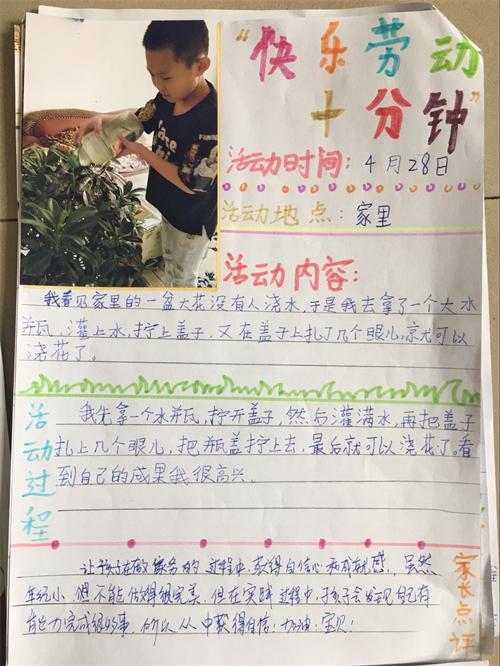 “快乐劳动
十分钟”
活动时间：4月28日
活动地点：家里
活动内容：
我看见家里的一盆大花没有人浇水，于是我去拿了一个大水
瓶，灌上水，拧上盖子，又在盖子上扎了几个眼儿，就可以
浇花了。
活动过程
我先拿一个水瓶，拧开盖子，然后灌满水，再把盖子
扎上几个眼儿，把瓶盖拧上去，最后就可以浇花了。看
到自己的成果我很高兴。
家长点评
让孩子在做家务的过程中，获得自信心和成就感，虽然
年纪小，做不能做得很完美，但在实践过程中，孩子会发现自己有
能力完成很多事，所以从中获得自信！加油！宝贝！